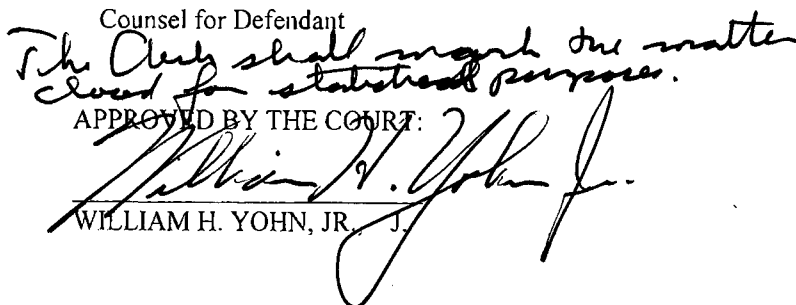 Counsel for Defendant
The Clerk shall mark the matter
closed for statistical purposes.
APPROVED BY THE COURT:
William H. Yohn Jr.
WILLIAM H. YOHN, JR., J.